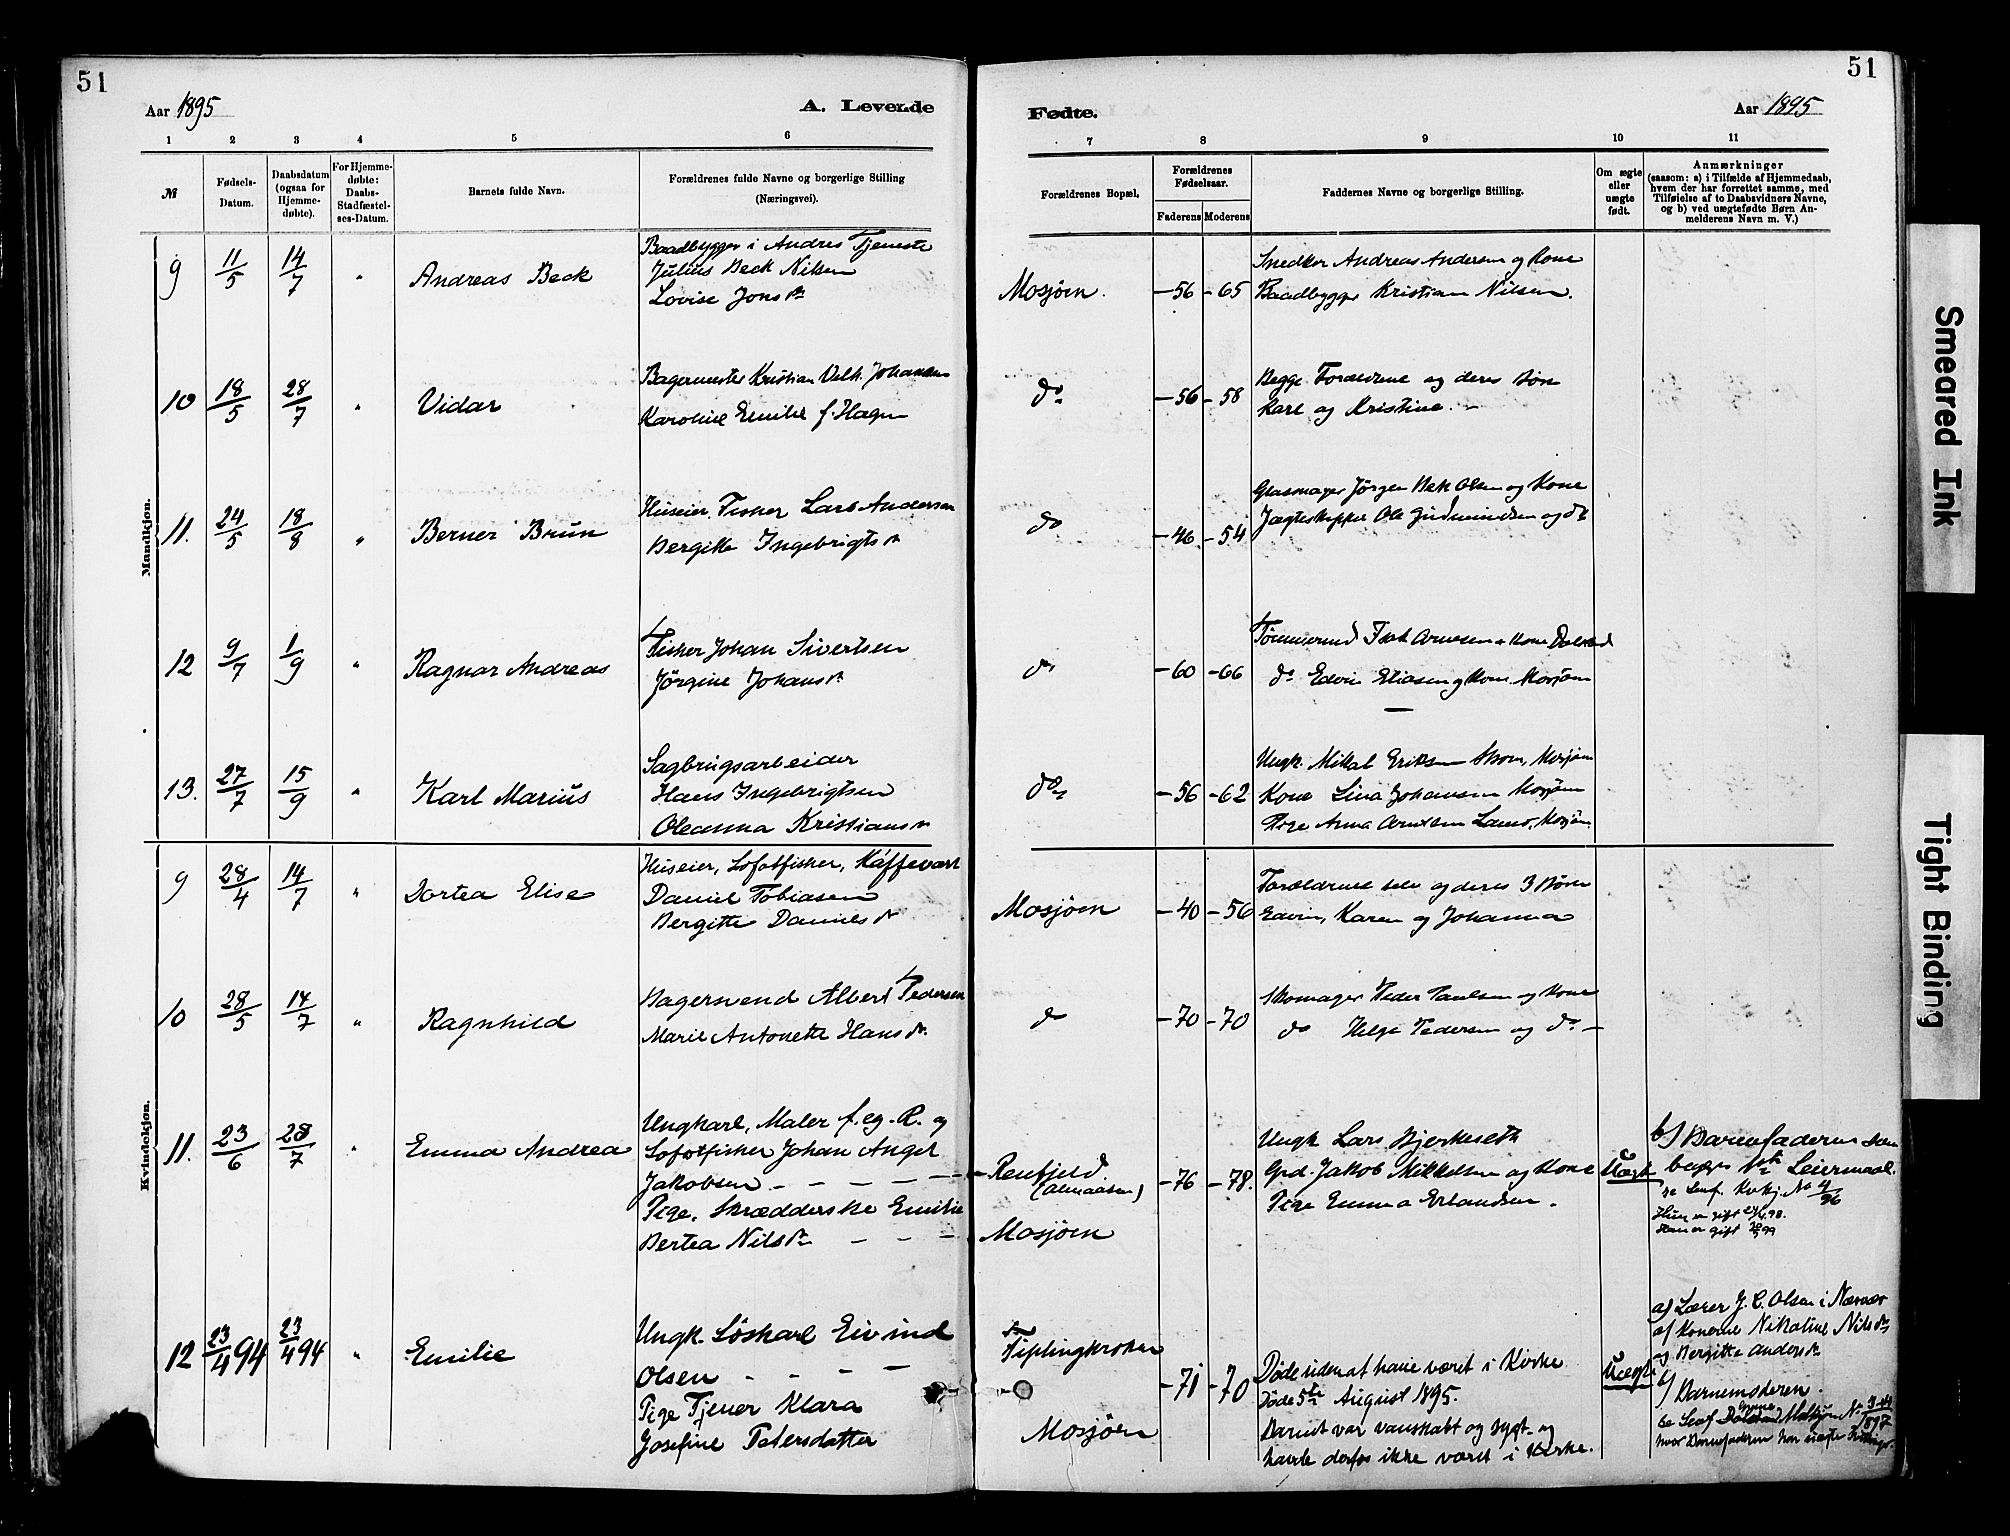 51
51
Aar 1895
A. Levende
Fødte.
Aar 1895
1 2 3 4 5 6 7 8 9 10 11
№
Fødsels-
Datum.
Daabsdatum
(ogsaa for
Hjemme-
døbte).
For Hjemme-
døbte:
Daabs-
Stadfæstel-
ses-Datum.
Barnets fulde Navn.
Forældrenes fulde Navne og borgerlige Stilling
(Næringsvei).
Forældrenes Bopæl.
Forældrenes
Fødselsaar.
Faderens Moderens
Faddernes Navne og borgerlige Stilling.
Om ægte
eller
uægte
født.
Anmærkninger
(saasom: a) i Tilfælde af Hjemmedaab,
hvem der har forrettet samme, med
Tilføielse af to Daabsvidners Navne,
og b) ved uægtefødte Børn An-
melderens Navn m. V.)
Mandkjøn.
9 11/5 14/7 " Andreas Beck
Baadbygger i Andres Tjeneste
Julius Beck Nilsen
Lovise Jonsdr
Mosjøen. -56 -65
Snedker Andreas Andersen og Kone
Baadbygger Kristian Nilsen.
10 18/5 28/7 " Vidar
Bagermester Kristian Vilh. Johansen
Karoline Emilie f. Hagen
do -56 -58
Begge Forældrene og deres Søn
Karl og Kristine. -
11. 24/5 18/8 " Berner Brun
Huseier, Fisker Lars Andersen
Bergitte Ingebrigtsdr
do -46 -54
Glasmager Jørgen Bek Olsen og Kone
Jægteskipper Ole Gudmundsen og do
12 9/7 1/9 " Ragnar Andreas
Fisker Johan Sivertsen
Jørgine Johansdr
do -60 -66
Tømmermd Arnesen & Kone Dolstad
do Edvin Eliasen og Kone Mosjøen
13. 27/7 15/9 " Karl Marius
Sagbrugsarbeider
Hans Ingebrigtsen
Oleanna Kristiansdr
do -56 -62
Ungk. Mikal Eriksen Mosjøen
Kone Lina Johansen Mosjøen
Pige Anna Arntsen Mosjøen.
Kvindekjøn.
9 28/4 14/7 " Dortea Elise
Huseier, Lofotfisker, Kaffevært
Daniel Tobiasen
Bergitte Danielsdr
Mosjøen -40 -56
Forældrene selv og deres 3 Børn
Edvin, Karen og Johanna
10 28/5 14/7 " Ragnhild
Bagersvend Albert Pedersen
Marie Antonette Hansdr.
do -70 -70
Skomager Peder Paulsen og Kone
do Helge Pedersen og do -
11. 23/6 28/7 " Emma Andrea
Ungkarl, Maler f. eg. R. og
Lofotfisker Johan Angel
Jakobsen - - - - -
Pige, Skrædderske Emilie
Bertea Nilsdr - - -
Renfjeld
(Almaasen)
Mosjøen
-76 -78.
Ungk Lars Bjerkeseth
Grd. Jakob Mikkelsen og Kone
Pige Emma Erlandsen.
Uægte
b) Barnefaderen
begges 1ste Leiermaal.
se Kvkj. No 4/96
Hun er gift 98.
Han er gift 99
12 23/4 94 23/4 94 " Emilie
Ungk. Løskarl Eivind
Olsen - - - -
Pige Tjener Klara
Josefine Petersdatter
Tiplingkroken
Mosjøen
-71 -70
Døde siden at have været i Kirke
Døde 5te August 1895.
Barnet var vanskabt og sygt og
havde derfor ikke været i Kirke.
Uægte
a) Lærer J. C. Olsen i Nærvær
af Konerne Nikoline Nilsdr
og Bergitte Andersdr
b) Barnemoderen.
se Dolstad 1897
hvor Barnefaderen har
Smeared Ink
Tight Binding